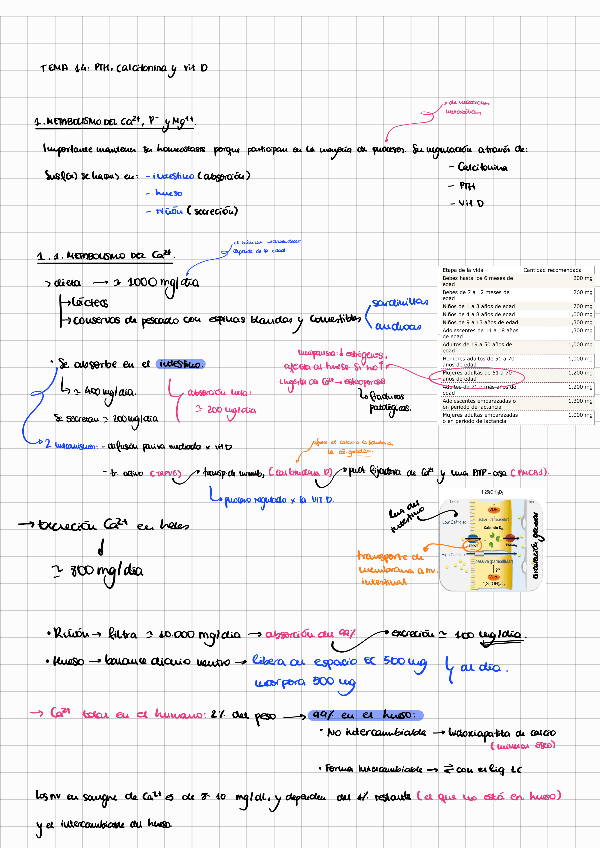 TEMA 14: PTH, Calcitonina y Vit D
de neurotrans
1. METABOLISMO DEL Ca²⁺, P⁻ y Mg²⁺.
Importante mantener su homeostasis porque participan en la mayoría de procesos. Su regulación a través de:
- Calcitonina
- PTH
- Vit D
se hacen en: - intestino (absorción)
- hueso
- riñón (secreción)
1.1. METABOLISMO DEL Ca²⁺.
depende de la edad
> dieta → ≃ 1000 mg/día
↳ lácteos
↳ conservas de pescado con espinas blandas y comestibles
sardinillas
anchoas
Etapa de la vida Cantidad recomendada
Bebés hasta los 6 meses de edad 200 mg
Bebés de 7 a 12 meses de edad 260 mg
Niños de 1 a 3 años de edad 700 mg
Niños de 4 a 8 años de edad 1,000 mg
Niños de 9 a 13 años de edad 1,300 mg
Adolescentes de 14 a 18 años de edad 1,300 mg
Adultos de 19 a 50 años de edad 1,000 mg
Hombres adultos de 51 a 70 años de edad 1,000 mg
Mujeres adultas de 51 a 70 años de edad 1,200 mg
Adultos de 71 o más años de edad 1,200 mg
Adolescentes embarazadas o en período de lactancia 1,300 mg
Mujeres adultas embarazadas o en período de lactancia 1,000 mg
menopausia ↓ estrógenos,
afecta al hueso si no ↑
ingesta de Ca²⁺ → osteoporosis
↳ fracturas
patológicas.
· Se absorbe en el intestino.
↳ ≃ 400 mg/día.
Se secretan ≃ 200 mg/día
absorción neta:
≃ 200 mg/día
2 mecanismos: - difusión pasiva mediado x vit D
- tr. activo (TRPV6) → transp. de memb. (calbindina D) → prot fijadora de Ca²⁺ y una ATP-asa (PMCA1).
↳ proceso regulado x la VIT D.
→ excreción Ca²⁺ en heces
↓
≃ 800 mg/día
luz del intestino
transporte de
membrana a nv.
intestinal
· Riñón → filtra ≃ 10.000 mg/día → absorción del 99% → excreción ≃ 100 mg/día.
· Hueso → balance diario neutro → libera al espacio EC 500 mg
incorpora 500 mg
al día.
→ Ca²⁺ total en el humano: 2% del peso → 99% en el hueso:
· No intercambiable → hidroxiapatita de calcio
(mineral óseo)
· Forma intercambiable → ⇄ con el líq EC
Los nv en sangre de Ca²⁺ es de 8-10 mg/dL, y dependen del 1% restante (el que no está en hueso)
y el intercambiable del hueso.